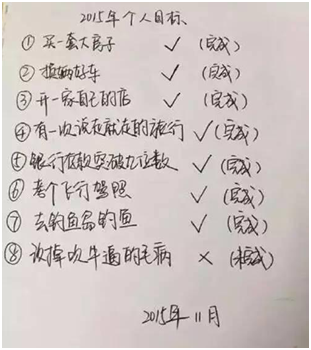 2015年个人目标
① 买一套大房子 ✓ (完成)
② 换辆好车 ✓ (完成)
③ 开一家自己的店 ✓ (完成)
④ 有一次说走就走的旅行 ✓ (完成)
⑤ 银行存款突破九位数 ✓ (完成)
⑥ 考个飞行驾照 ✓ (完成)
⑦ 去钓鱼岛钓鱼 ✓ (完成)
⑧ 改掉吹牛逼的毛病 × (未完成)
2015年 11月